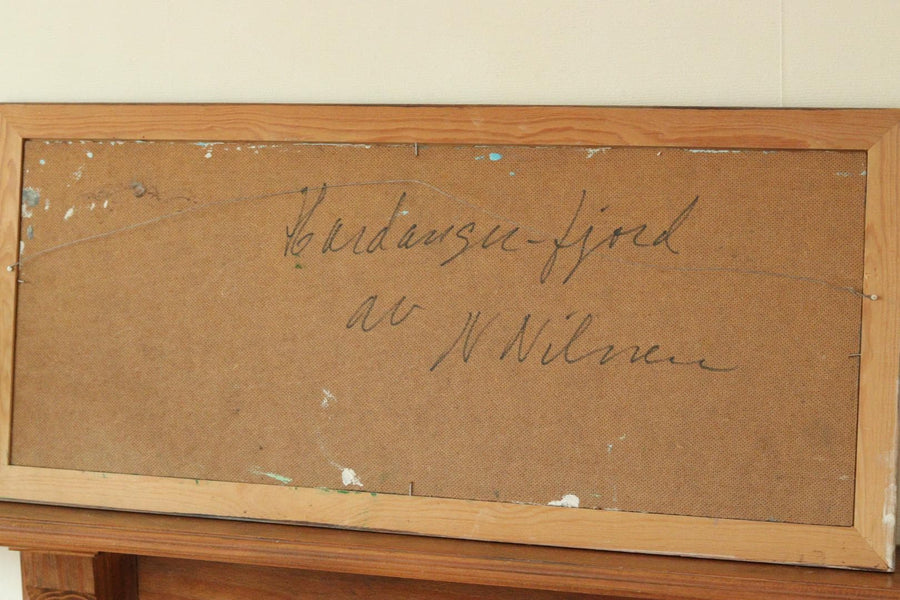 Hardanger-fjord
av
N Nilsen